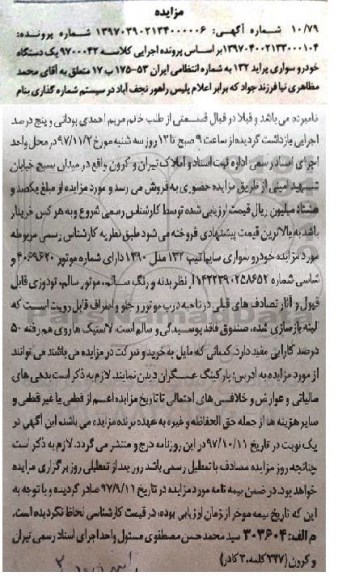 مزایده
۱۰/۷۹ شماره آگهی: ۱۳۹۷۰۳۹۰۲۱۳۴۰۰۰۰۰۶ شماره پرونده:
۱۳۹۷۰۴۰۰۲۱۳۳۰۰۰۱۰۴ بر اساس پرونده اجرایی کلاسه ۹۷۰۰۰۴۲ یک دستگاه
خودرو سواری پراید ۱۳۲ به شماره انتظامی ایران ۵۳-۱۷۵ ب ۱۷ متعلق به آقای محمد
مظاهری نیا فرزند جواد که برابر اعلام پلیس راهور نجف آباد در سیستم شماره گذاری بنام
نامبرده می باشد و قبلا در قبال قسمتی از طلب خانم مریم احمدی بودانی و پنج درصد
اجرایی بازداشت گردیده از ساعت ۹ صبح تا ۱۲ روز سه شنبه مورخ ۹۷/۱۱/۲ در محل واحد
اجرای اسناد رسمی اداره ثبت اسناد و املاک تیران و کرون واقع در میدان بسیج خیابان
شهید مبینی از طریق مزایده حضوری به فروش می رسد و مورد مزایده از مبلغ یکصد و
هشتاد میلیون ریال قیمت ارزیابی شده توسط کارشناس رسمی شروع و به هر کس خریدار
باشد به بالاترین قیمت پیشنهادی فروخته می شود طبق نظریه کارشناس رسمی مربوطه
مورد مزایده خودرو سواری سایپا تیپ ۱۳۲ مدل ۱۳۹۰ دارای شماره موتور ۴۰۶۹۶۲۰ و
شاسی شماره ۱۴۲۲۳۹۰۲۵۸۶۵۲ از نظر بدنه و رنگ سالم، موتور سالم، تودوزی قابل
قبول و آثار تصادف های قبلی در ناحیه درب موتور و جلو و اطراف قابل رویت است که
البته بازسازی شده، صندوق فاقد پوسیدگی و سالم است. لاستیک ها روی هم رفته ۵۰
درصد کارایی مفید دارد. کسانی که مایل به خرید و شرکت در مزایده می باشند می توانند
از مورد مزایده به آدرس: پارکینگ عسگران دیدن نمایند. لازم به ذکر است بدهی های
مالیاتی و عوارض و خلافی های احتمالی تا تاریخ مزایده اعم از قطعی یا غیر قطعی و
سایر هزینه ها از جمله حق الحفاظه و غیره به عهده برنده مزایده می باشد این آگهی در
یک نوبت در تاریخ ۹۷/۱۰/۱۱ در این روزنامه درج و منتشر می گردد. لازم به ذکر است
چنانچه روز مزایده مصادف با تعطیل رسمی باشد روز بعد از تعطیلی روز برگزاری مزایده
خواهد بود. در ضمن بیمه نامه مورد مزایده در تاریخ ۹۷/۹/۱۱ صادر گردیده و با توجه به
این که تاریخ بیمه موخر از زمان ارزیابی بوده، در قیمت کارشناسی لحاظ نگردیده است.
م الف: ۳۰۳۶۰۴ سید محمد حسن مصطفوی مسئول واحد اجرای اسناد رسمی تیران
و کرون (۲۳۷ کلمه، ۲ کادر)